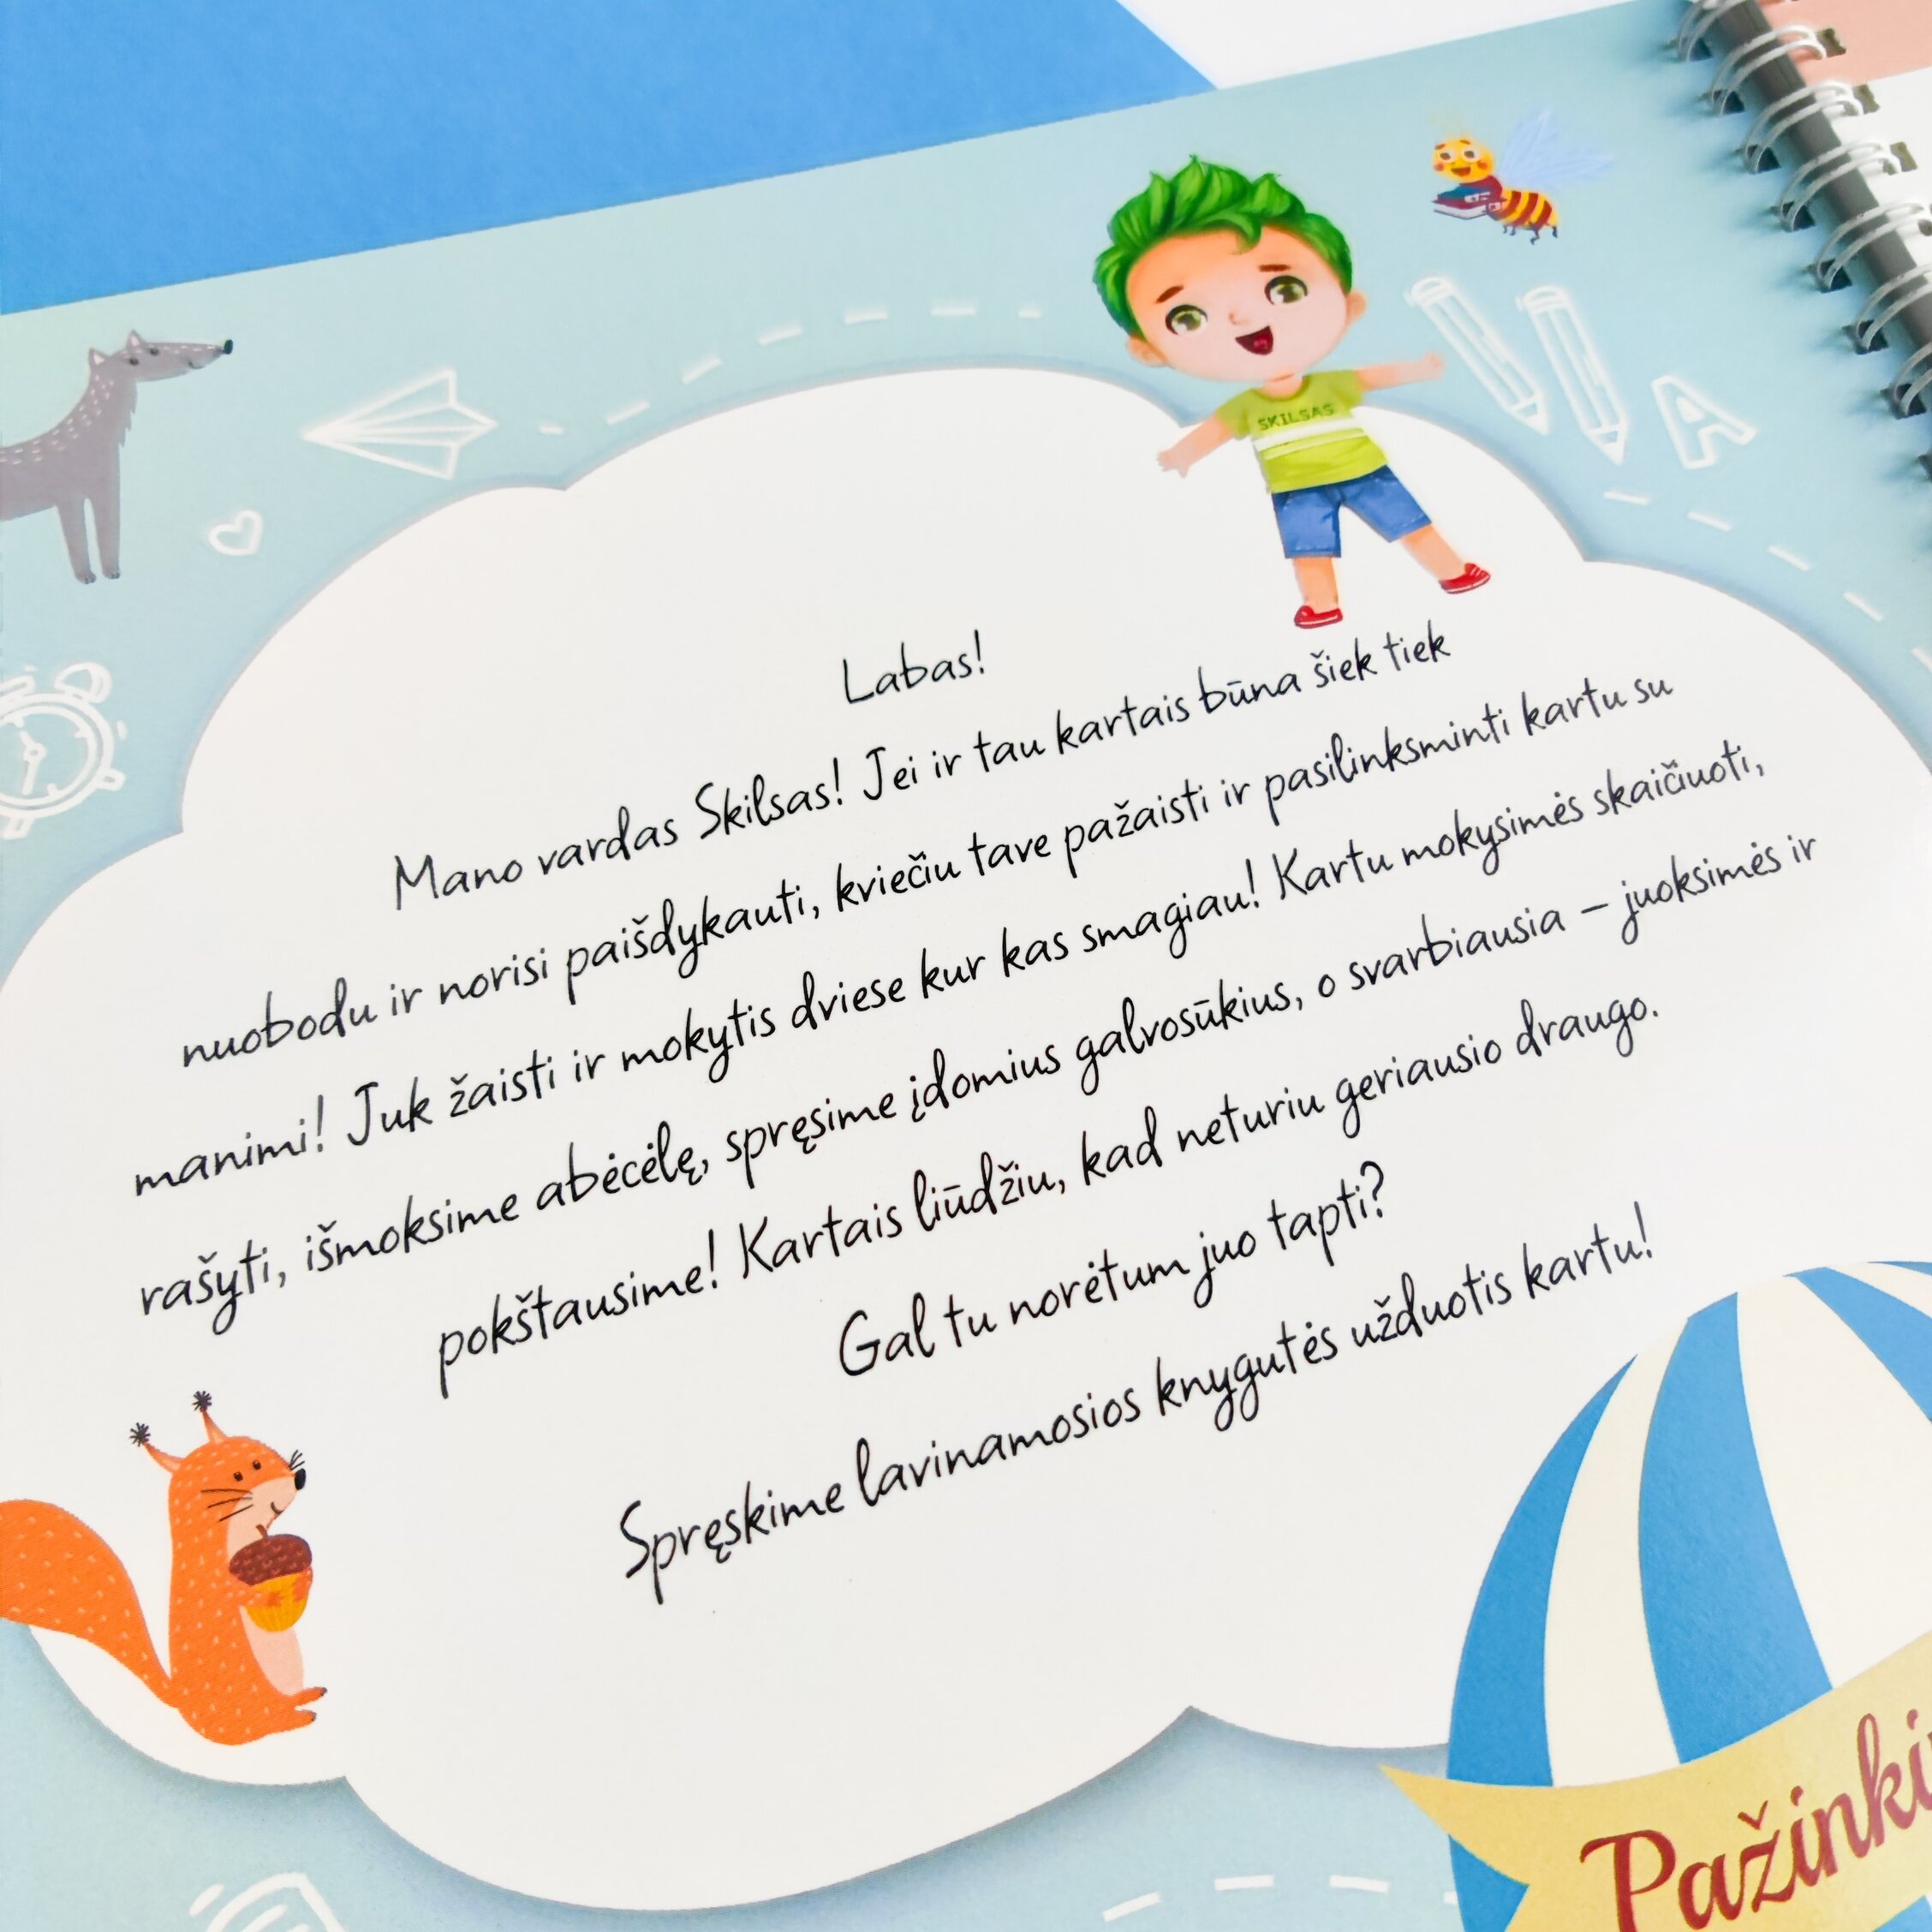 SKILSAS
Labas!
Mano vardas Skilsas! Jei ir tau kartais būna šiek tiek
nuobodu ir norisi paišdykauti, kviečiu tave pažaisti ir pasilinksminti kartu su
manimi! Juk žaisti ir mokytis dviese kur kas smagiau! Kartu mokysimės skaičiuoti,
rašyti, išmoksime abėcėlę, spręsime įdomius galvosūkius, o svarbiausia – juoksimės ir
pokštausime! Kartais liūdžiu, kad neturiu geriausio draugo.
Gal tu norėtum juo tapti?
Spręskime lavinamosios knygutės užduotis kartu!
A